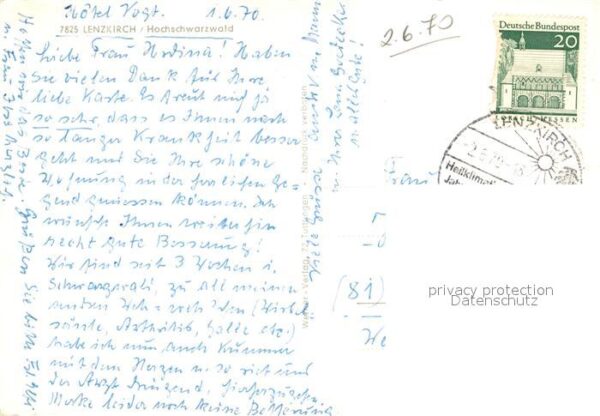 Hôtel Vogt. 1.6.70.
7825 LENZKIRCH / Hochschwarzwald
Liebe Frau Medina! Haben
Sie vielen Dank für Ihre
liebe Karte. Es freut mich ja
so sehr dass es Ihnen nach
so langer Krankheit besser
geht und Sie Ihre schöne
Wohnung in der herrlichen Ge-
gend geniessen können. Ich
wünsche Ihnen weiterhin
recht gute Besserung!
Wir sind seit 3 Wochen i.
Schwarzwald, zu all meinen
anderen Weh-wehchen (Wirbel-
säule, Arthritis, Galle etc.)
habe ich nun auch Kummer
mit dem Herzen u. so riet uns
der Arzt dringend, hierher zu gehen.
Merke leider noch keine Besserung
Viele Grüsse
u. Ihre
alles Gute!
Hoffen wir das Beste. Grüßen Sie bitte
2.6.70
Deutsche Bundespost
20
LORSCH HESSEN
LENZKIRCH
-2.6.70-18
Heilklimati
Jah
Frau
(81)
We
Nachdruck verboten
privacy protection
Datenschutz